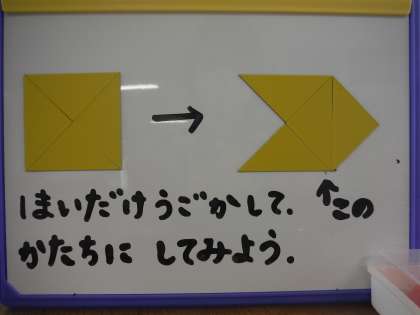 1まいだけうごかして. ↑この
かたちに してみよう.